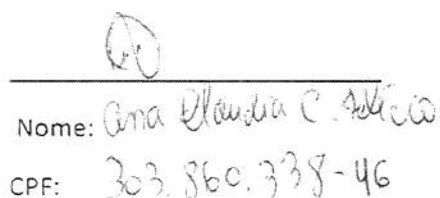 Nome: Ana Claudia C.
CPF: 303.860.338-46